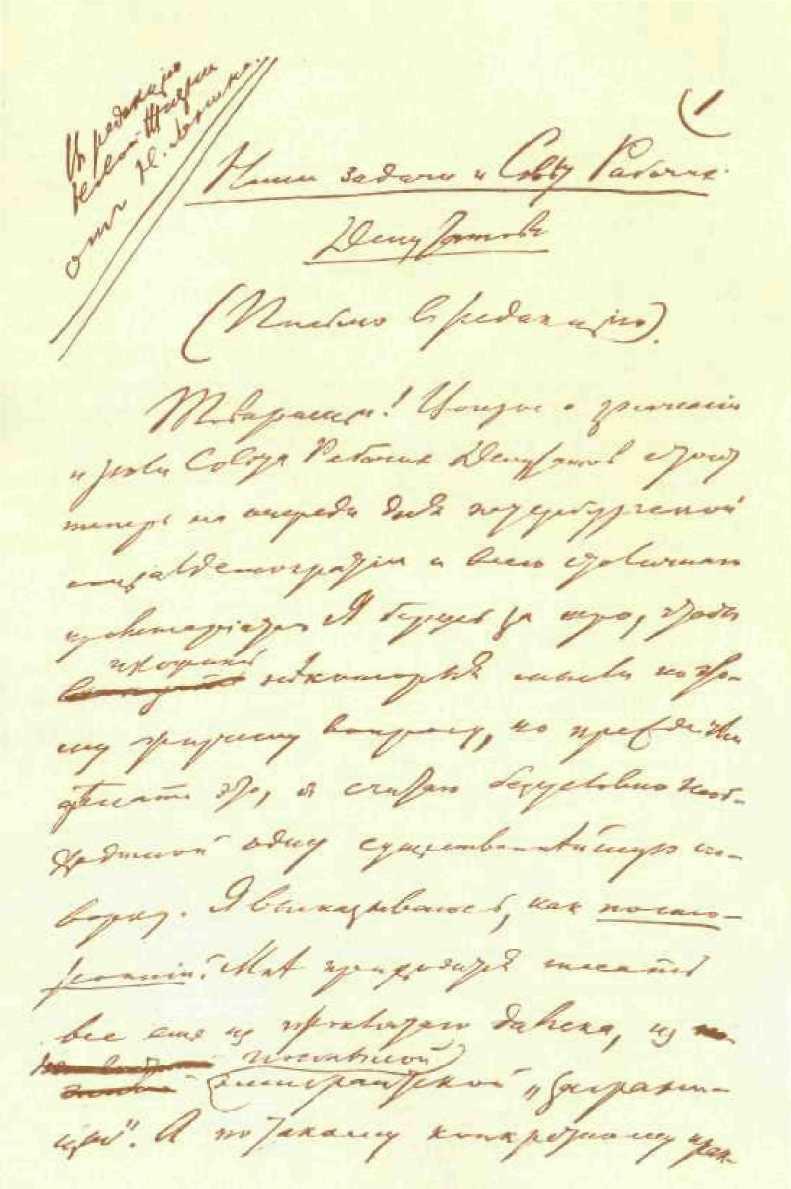 Въ редакцію
Новой Жизни
отъ Н. Ленина.
1
Наши задачи и Совѣт Рабочих
Депутатов
(Письмо в редакцію).
Товарищи! Вопрос о значеніи
и роли Совѣта Рабочих Депутатов стоит
теперь на очереди дня петербургской
социалдемократіи и всего столичнаго
пролетаріата. Я берусь за перо, чтобы
нѣкоторыя мысли по это-
му жгучему вопросу, но прежде чѣм
дѣлать это, я считаю безусловно необ-
ходимой одну существеннѣйшую ого-
ворку. Я высказываюсь, как посто-
ронній. Мнѣ приходится писать
все еще из проклятаго далека, из
постылой
эмигрантской „заграни-
цы". А по такому конкретному прак-